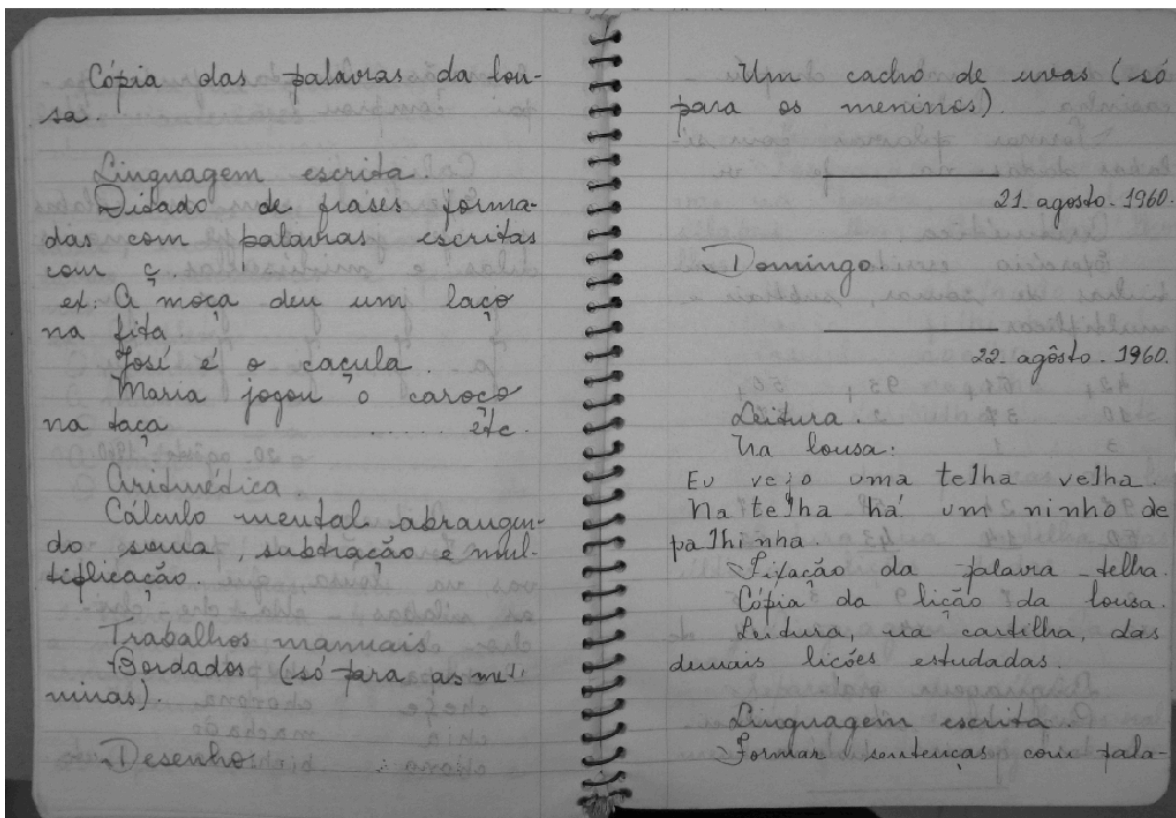 Cópia das palavras da lou-
sa.
Linguagem escrita.
Ditado de frases forma-
das com palavras escritas
com ç.
ex: A moça deu um laço
na fita.
José é o caçula.
Maria jogou o caroço
na taça ...... etc.
Aritmédica.
Cálculo mental abrangen-
do soma, subtração e mul-
tiplicação.
Trabalhos manuais.
Bordados (só para as me-
ninas).
Desenho:
Um cacho de uvas (só
para os meninos).
21. agosto. 1960.
Domingo.
22. agôsto. 1960.
Leitura.
Na lousa:
Eu vejo uma telha velha.
Na telha há um ninho de
palhinha.
Fixação da palavra - telha.
Cópia da lição da lousa.
Leitura, na cartilha, das
demais lições estudadas.
Linguagem escrita.
Formar sentenças com pala-